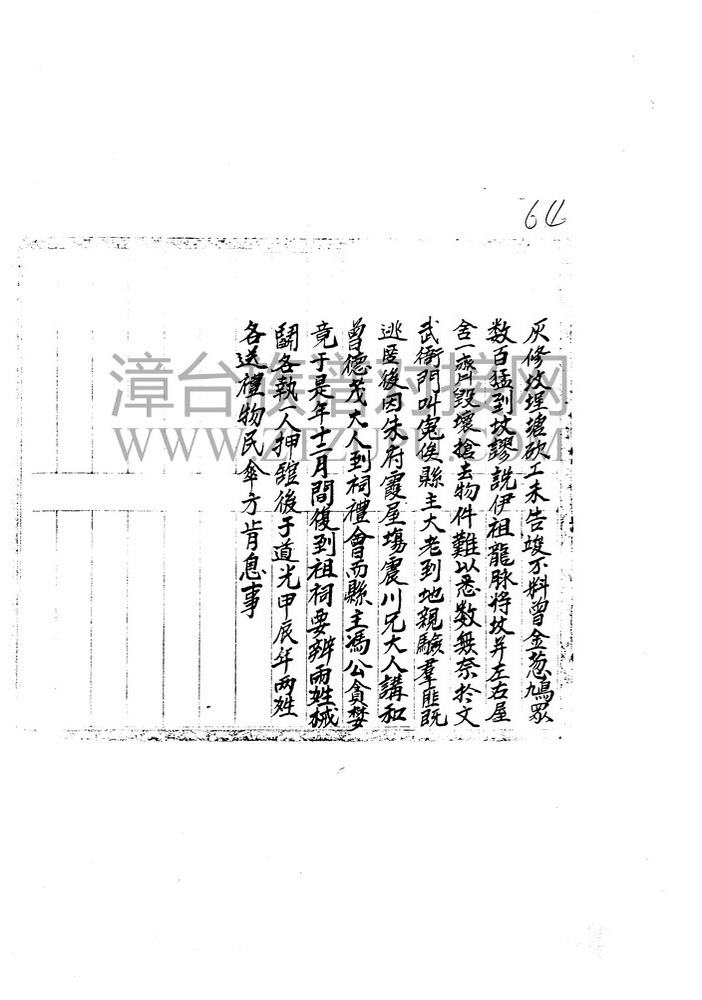 64
灰修坟埕墻砍工未告竣不料曾金葱鳩眾
数百猛到坟謬說伊祖龍脉将坟并左右屋
舍一齊毀壞搶去物件難以悉数無奈於文
武衙門叫冤俟縣主大老到地親驗羣匪既
逃匿後因朱府霞屋塲震川兄大人講和
曾德茂大人到祠禮會而縣主馮公貪婪
竟于是年十二月間復到祖祠要辨兩姓械
鬪各執一人押舘後于道光甲辰年兩姓
各送禮物民傘方肯息事
漳台族谱对接网
WWW.ZTZUPU.NET